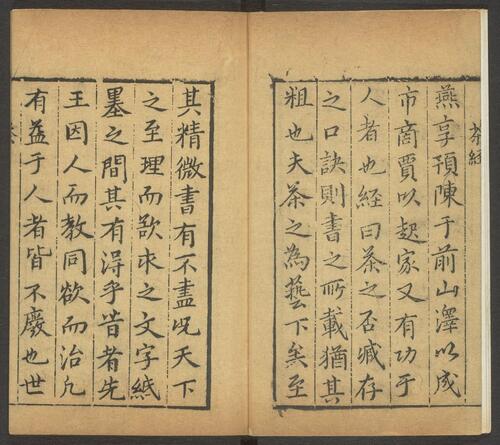 茶經
燕享預陳于前山澤以成
市商賈以起家又有功于
人者也經曰茶之否臧存
之口訣則書之所載猶其
粗也夫茶之為藝下矣至
其精微書有不盡况天下
之至理而欲求之文字紙
墨之間其有得乎昔者先
王因人而教同欲而治凡
有益于人者皆不廢也世